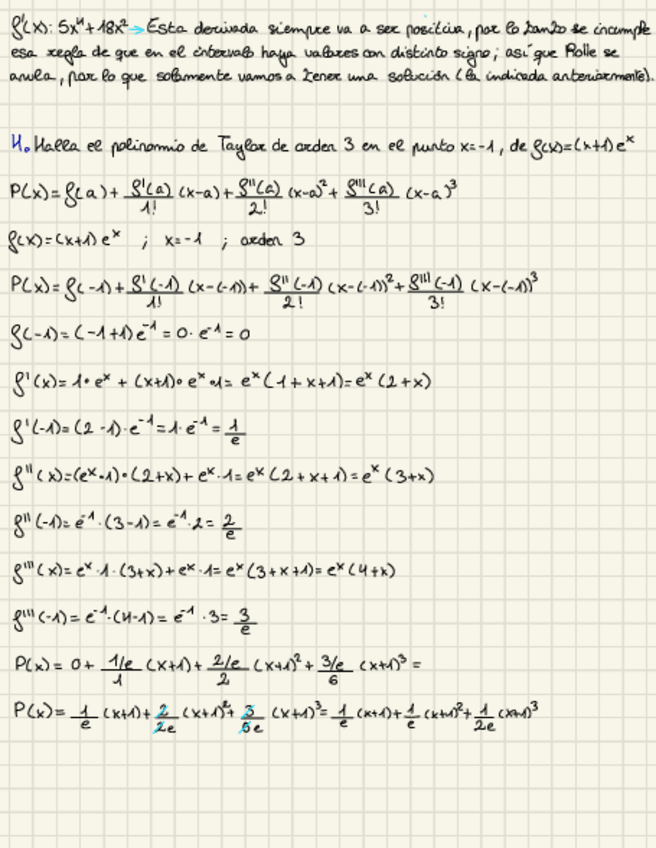 f'(x): 5x⁴+18x² → Esta derivada siempre va a ser positiva, por lo tanto se incumple
esa regla de que en el intervalo haya valores con distinto signo; así que Rolle se
anula, por lo que solamente vamos a tener una solución (la indicada anteriormente).
4. Halla el polinomio de Taylor de orden 3 en el punto x=-1, de f(x)=(x+1)eˣ
P(x)=f(a)+ f'(a)/1! (x-a)+ f''(a)/2! (x-a)²+ f'''(a)/3! (x-a)³
f(x)=(x+1)eˣ ; x=-1 ; orden 3
P(x)=f(-1)+ f'(-1)/1! (x-(-1))+ f''(-1)/2! (x-(-1))²+ f'''(-1)/3! (x-(-1))³
f(-1)=(-1+1)e⁻¹=0·e⁻¹=0
f'(x)=1·eˣ+(x+1)·eˣ·1=eˣ(1+x+1)=eˣ(2+x)
f'(-1)=(2-1)·e⁻¹=1·e⁻¹=1/e
f''(x)=(eˣ·1)·(2+x)+eˣ·1=eˣ(2+x+1)=eˣ(3+x)
f''(-1)=e⁻¹·(3-1)=e⁻¹·2=2/e
f'''(x)=eˣ·1·(3+x)+eˣ·1=eˣ(3+x+1)=eˣ(4+x)
f'''(-1)=e⁻¹·(4-1)=e⁻¹·3=3/e
P(x)=0+ 1/e/1 (x+1)+ 2/e/2 (x+1)²+ 3/e/6 (x+1)³=
P(x)= 1/e (x+1)+ 2/2e (x+1)²+ 3/6e (x+1)³= 1/e (x+1)+ 1/e (x+1)²+ 1/2e (x+1)³